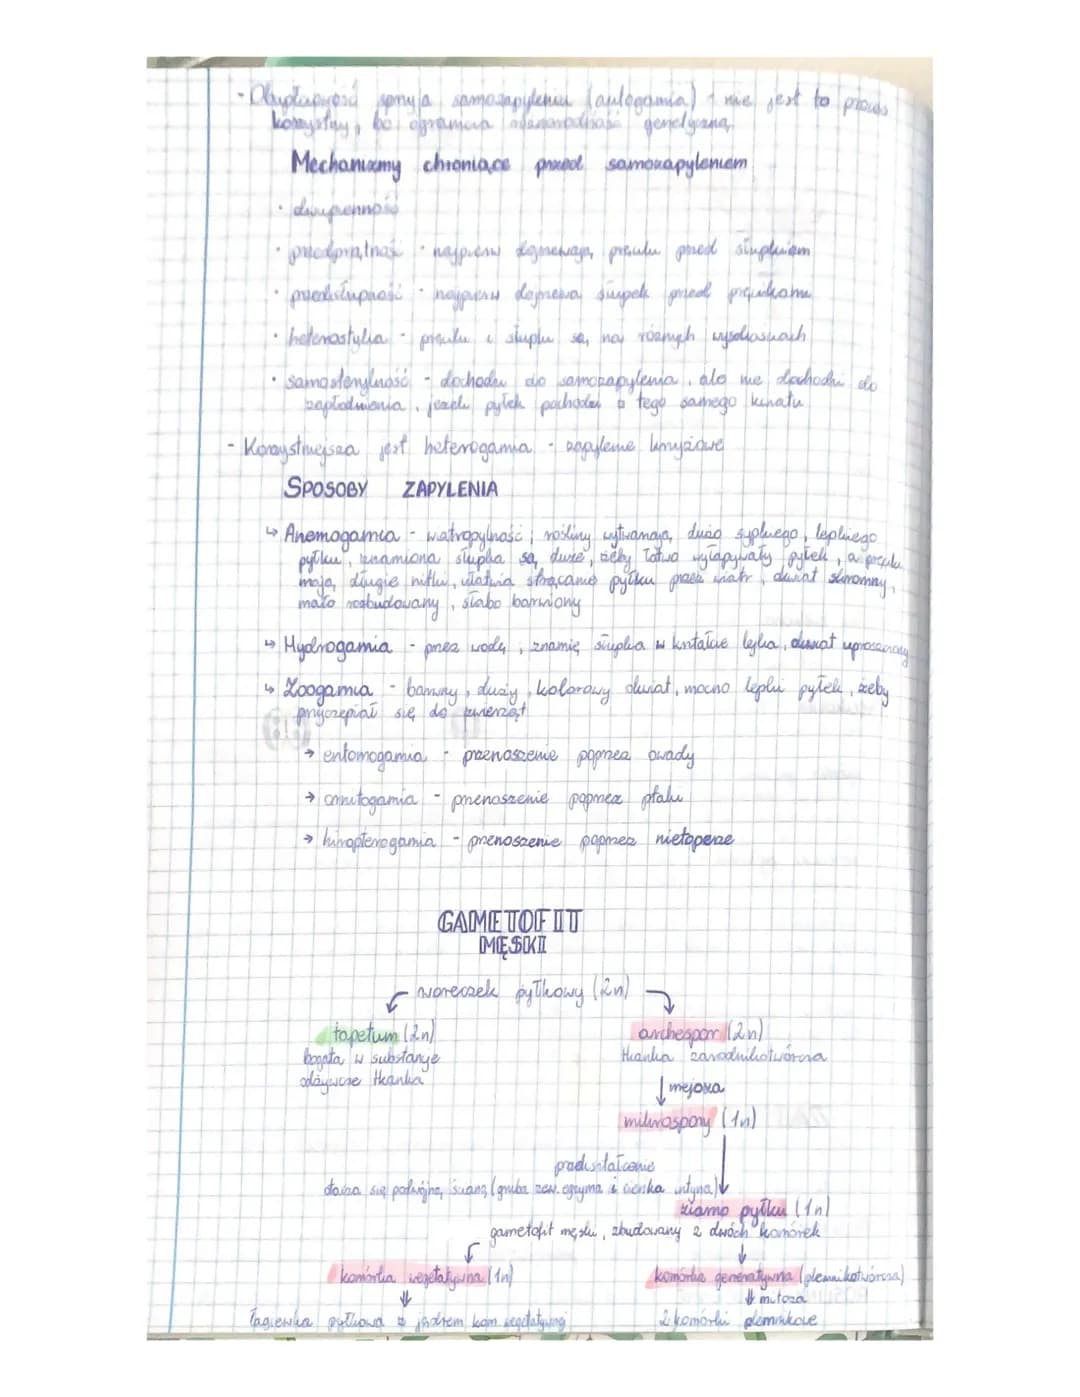 - Obupłciowość sprzyja samozapyleniu (autogamia) - nie jest to proces
korzystny, bo ogranicza różnorodność genetyczną
Mechanizmy chroniące przed samozapyleniem
· dwupienność
· przedprątność - najpierw dojrzewają pręciki przed słupkiem
· przedsłupność - najpierw dojrzewa słupek przed pręcikami
· heterostylia - pręciki i słupki są na różnych wysokościach
· samosterylność - dochodzi do samozapylenia, ale nie dochodzi do
zapłodnienia, jeżeli pyłek pochodzi z tego samego kwiatu
- Korzystniejsza jest heterogamia - zapylenie krzyżowe
SPOSOBY ZAPYLENIA
↳ Anemogamia - wiatropylność; rośliny wytwarzają dużo sypkiego, lepkiego
pyłku, znamiona słupka są duże, żeby łatwo wyłapywały pyłek, a pręciki
mają długie nitki, ułatwia strącanie pyłku przez wiatr, kwiat skromny,
mało rozbudowany, słabo barwiony
↳ Hydrogamia - przez wodę, znamię słupka w kształcie lejka, kwiat uproszczony
↳ Zoogamia - barwny, duży, kolorowy kwiat, mocno lepki pyłek, żeby
przyczepiał się do zwierząt
→ entomogamia - przenoszenie poprzez owady
→ ornitogamia - przenoszenie poprzez ptaki
→ hiropterogamia - przenoszenie poprzez nietoperze
GAMETOFIT
MĘSKI
woreczek pyłkowy (2n)
tapetum (2n)
bogata w substancje
odżywcze tkanka
archespor (2n)
tkanka zarodnikotwórcza
↓ mejoza
mikrospory (1n)
przekształcenie
otacza się podwójną ścianą (gruba zew. egzyna i cienka intyna)
ziarno pyłku (1n)
gametofit męski, zbudowany z dwóch komórek
komórka wegetatywna (1n)
komórka generatywna (plemnikotwórcza)
↓ mitoza
łagiewka pyłkowa z jądrem kom. wegetatywnej
2 komórki plemnikowe